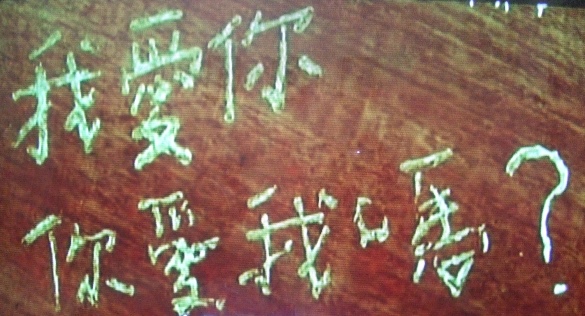 我愛你
你愛我嗎?